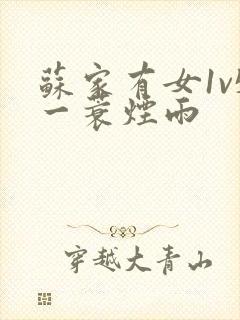 蘇家有女1v
一蓑煙雨
穿越大青山